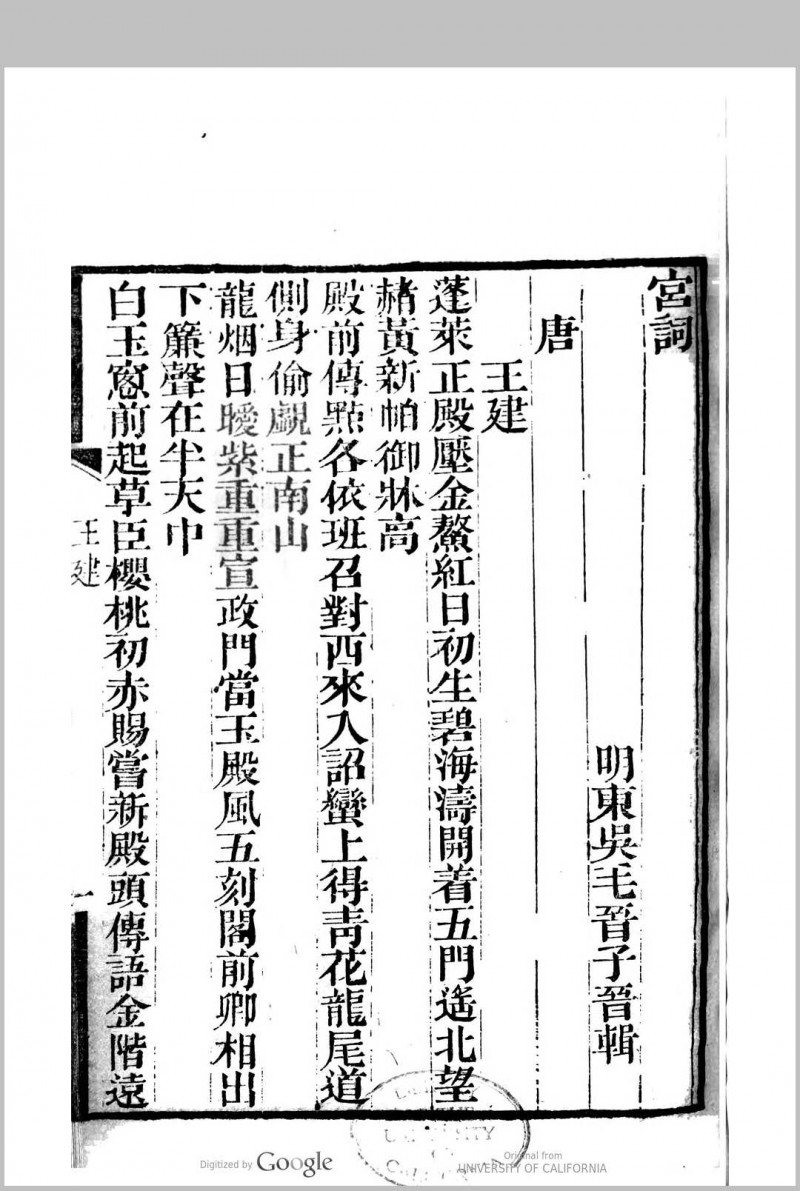 宮詞
明東吳毛晉子晉輯
唐
王建
蓬萊正殿壓金鰲紅日初生碧海濤開着五門遙北望
赭黃新帕御牀高
殿前傳㸃各依班召對西來入詔蠻上得靑花龍尾道
側身偷覷正南山
龍烟日曖紫重重宣政門當玉殿風五刻閣前卿相出
下簾聲在半天中
白玉窻前起草臣櫻桃初赤賜嘗新殿頭傳語金階遠
王建
一
Digitized by Google
Original from
UNIVERSITY OF CALIFORNIA